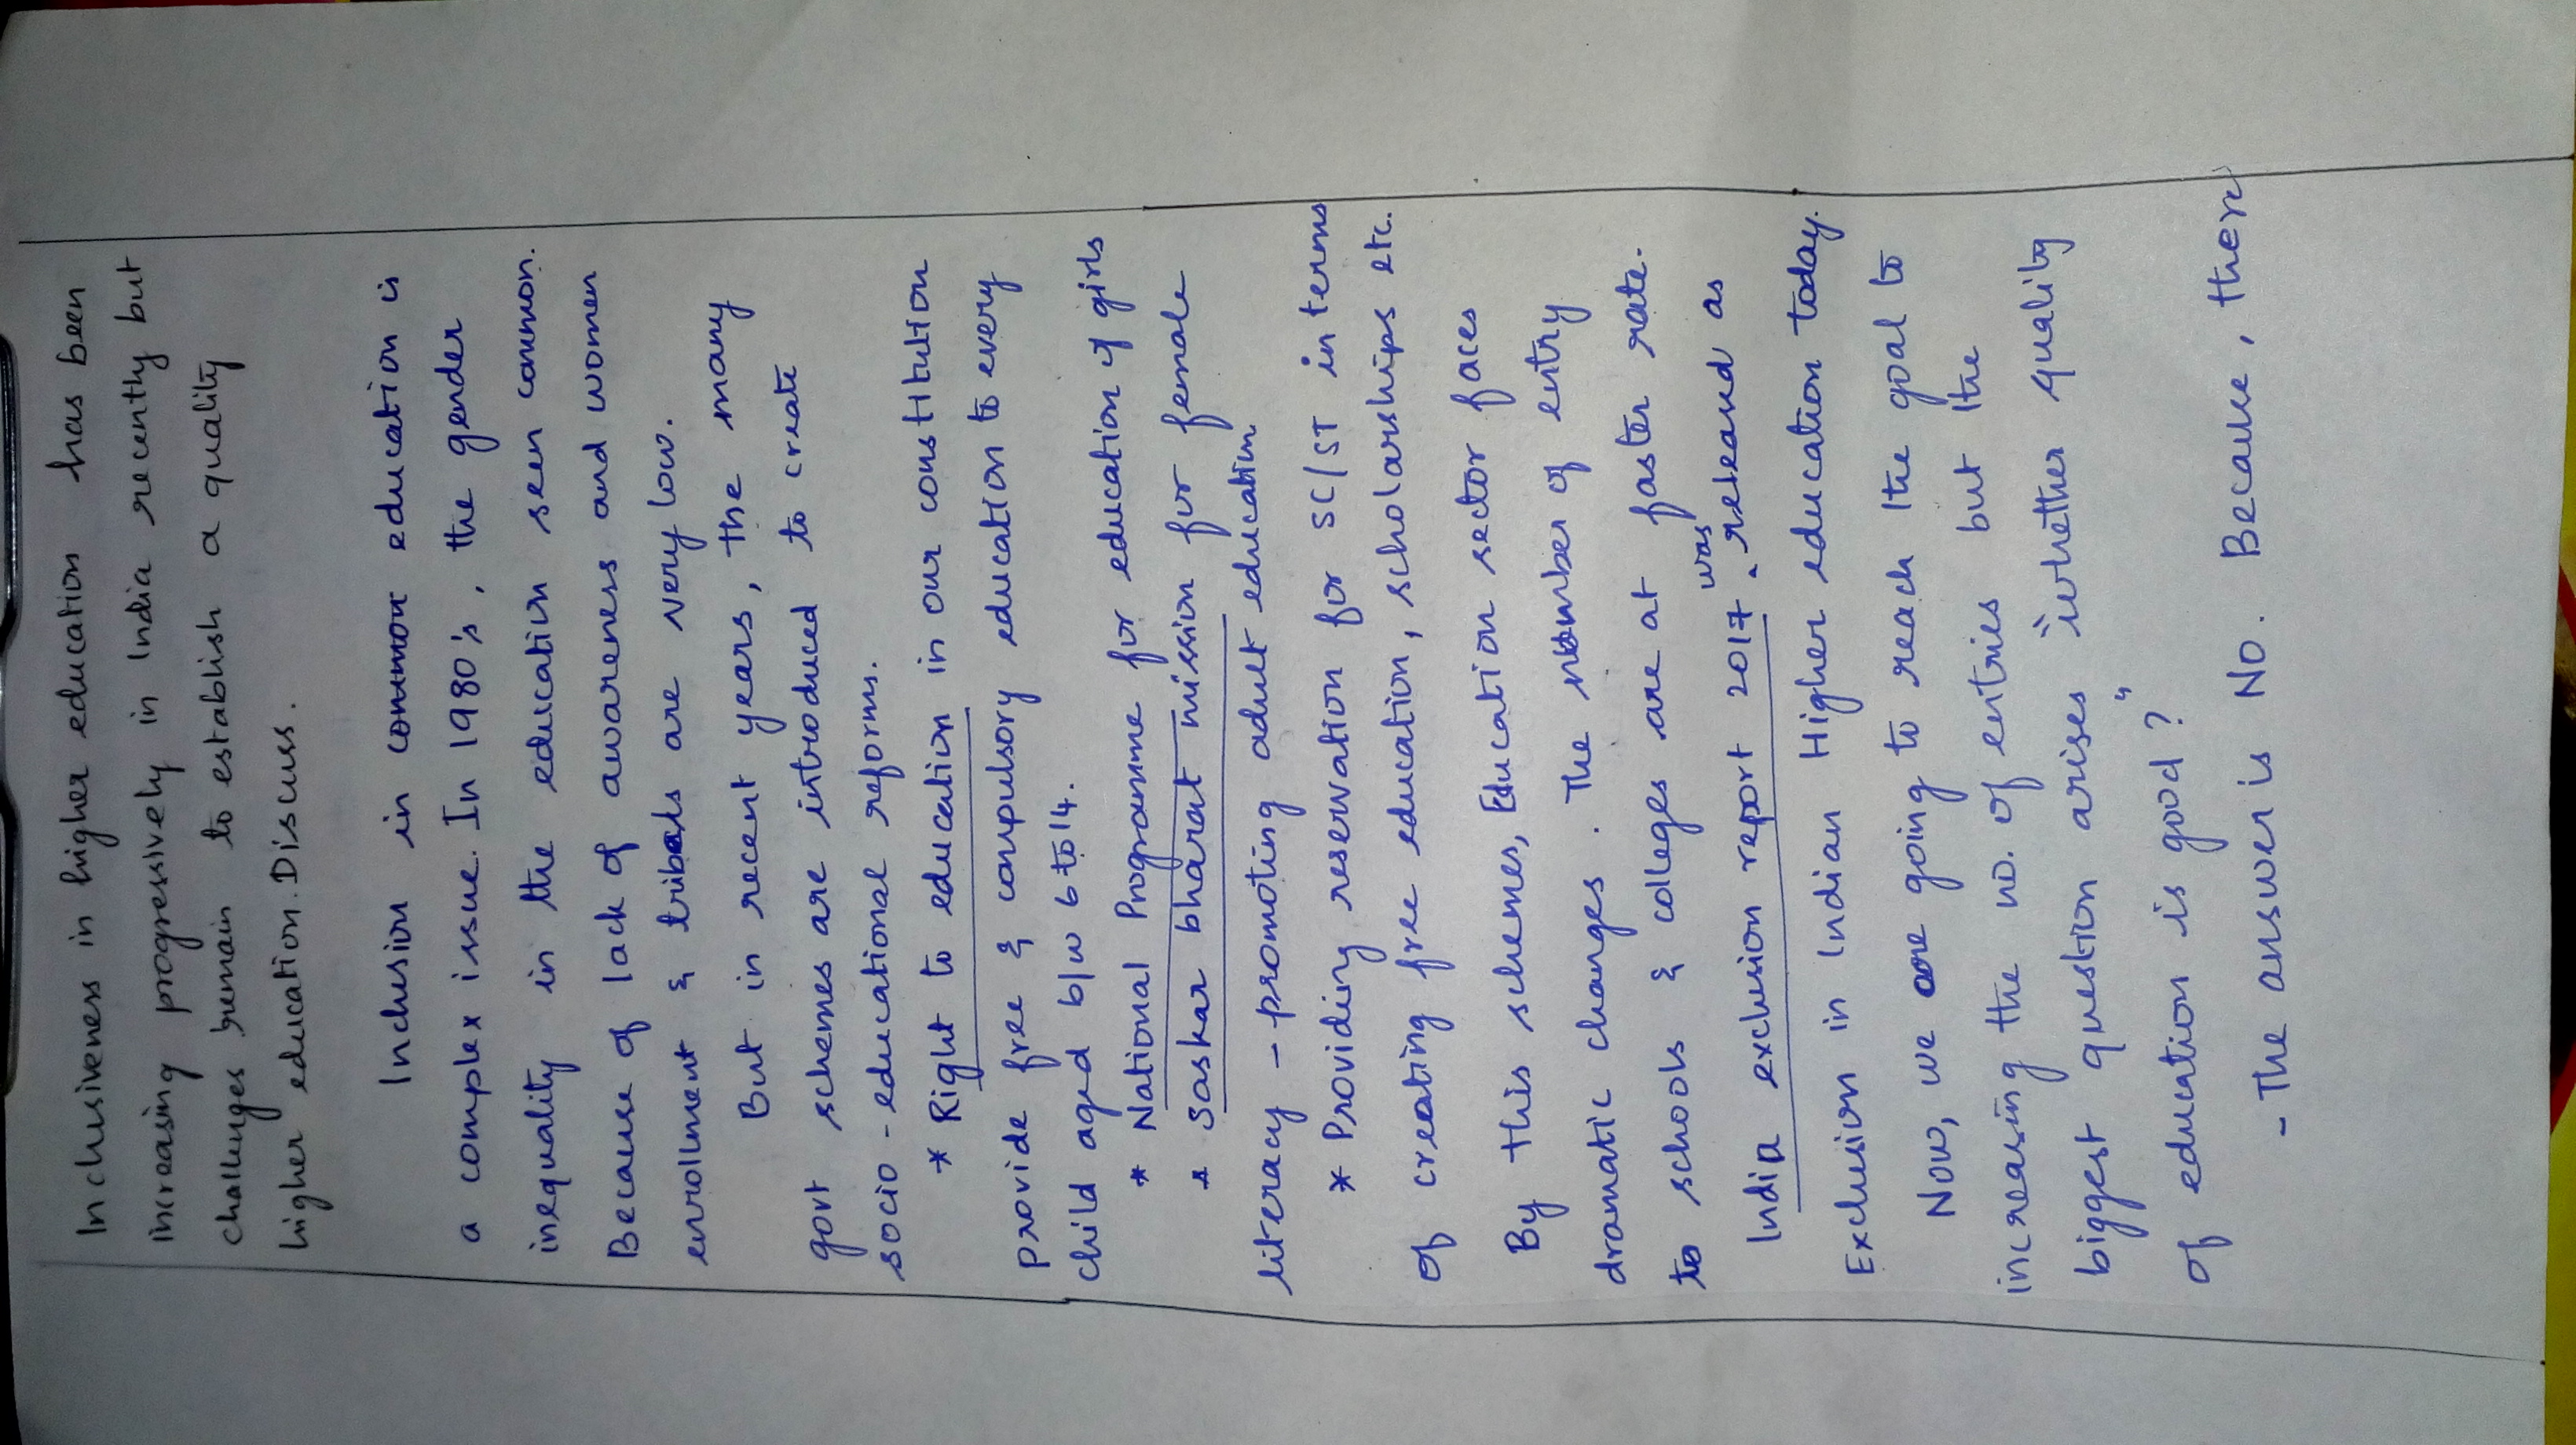 Inclusiveness in higher education has been
increasing progressively in India recently but
challenges remain to establish a quality
higher education. Discuss.
Inclusion in common education is
a complex issue. In 1980's, the gender
inequality in the education seen common.
Because of lack of awareness and women
enrollment & tribals are very low.
But in recent years, the many
govt schemes are introduced to create
socio-educational reforms.
* Right to education in our constitution
provide free & compulsory education to every
child aged b/w 6 to 14.
* National Programme for education of girls
* Saskar bharat mission for female
literacy - promoting adult education
* Providing reservation for SC/ST in terms
of creating free education, scholarships etc.
By this schemes, Education sector faces
dramatic changes. The number of entry
to schools & colleges are at faster rate.
India exclusion report 2017 was releand as
Exclusion in Indian Higher education today.
Now, we are going to reach the goal to
increasing the no. of entries but the
biggest question arises "whether quality
of education is good?"
- The answer is No. Because, there